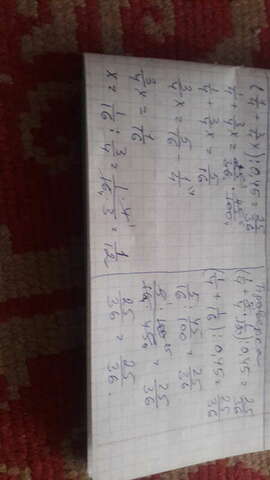 (1/4 + 3/4 x) : 0,45 = 25/36
1/4 + 3/4 x = 25/36 · 45/100
1/4 + 3/4 x = 5/16
3/4 x = 5/16 - 1/4
3/4 x = 1/16
x = 1/16 : 3/4 = 1·4/16·3 = 1/12
Проверка
(1/4 + 1/16) : 0,45 = 25/36
5/16 : 45/100 = 25/36
5·100/16·45 = 25/36
25/36 = 25/36.